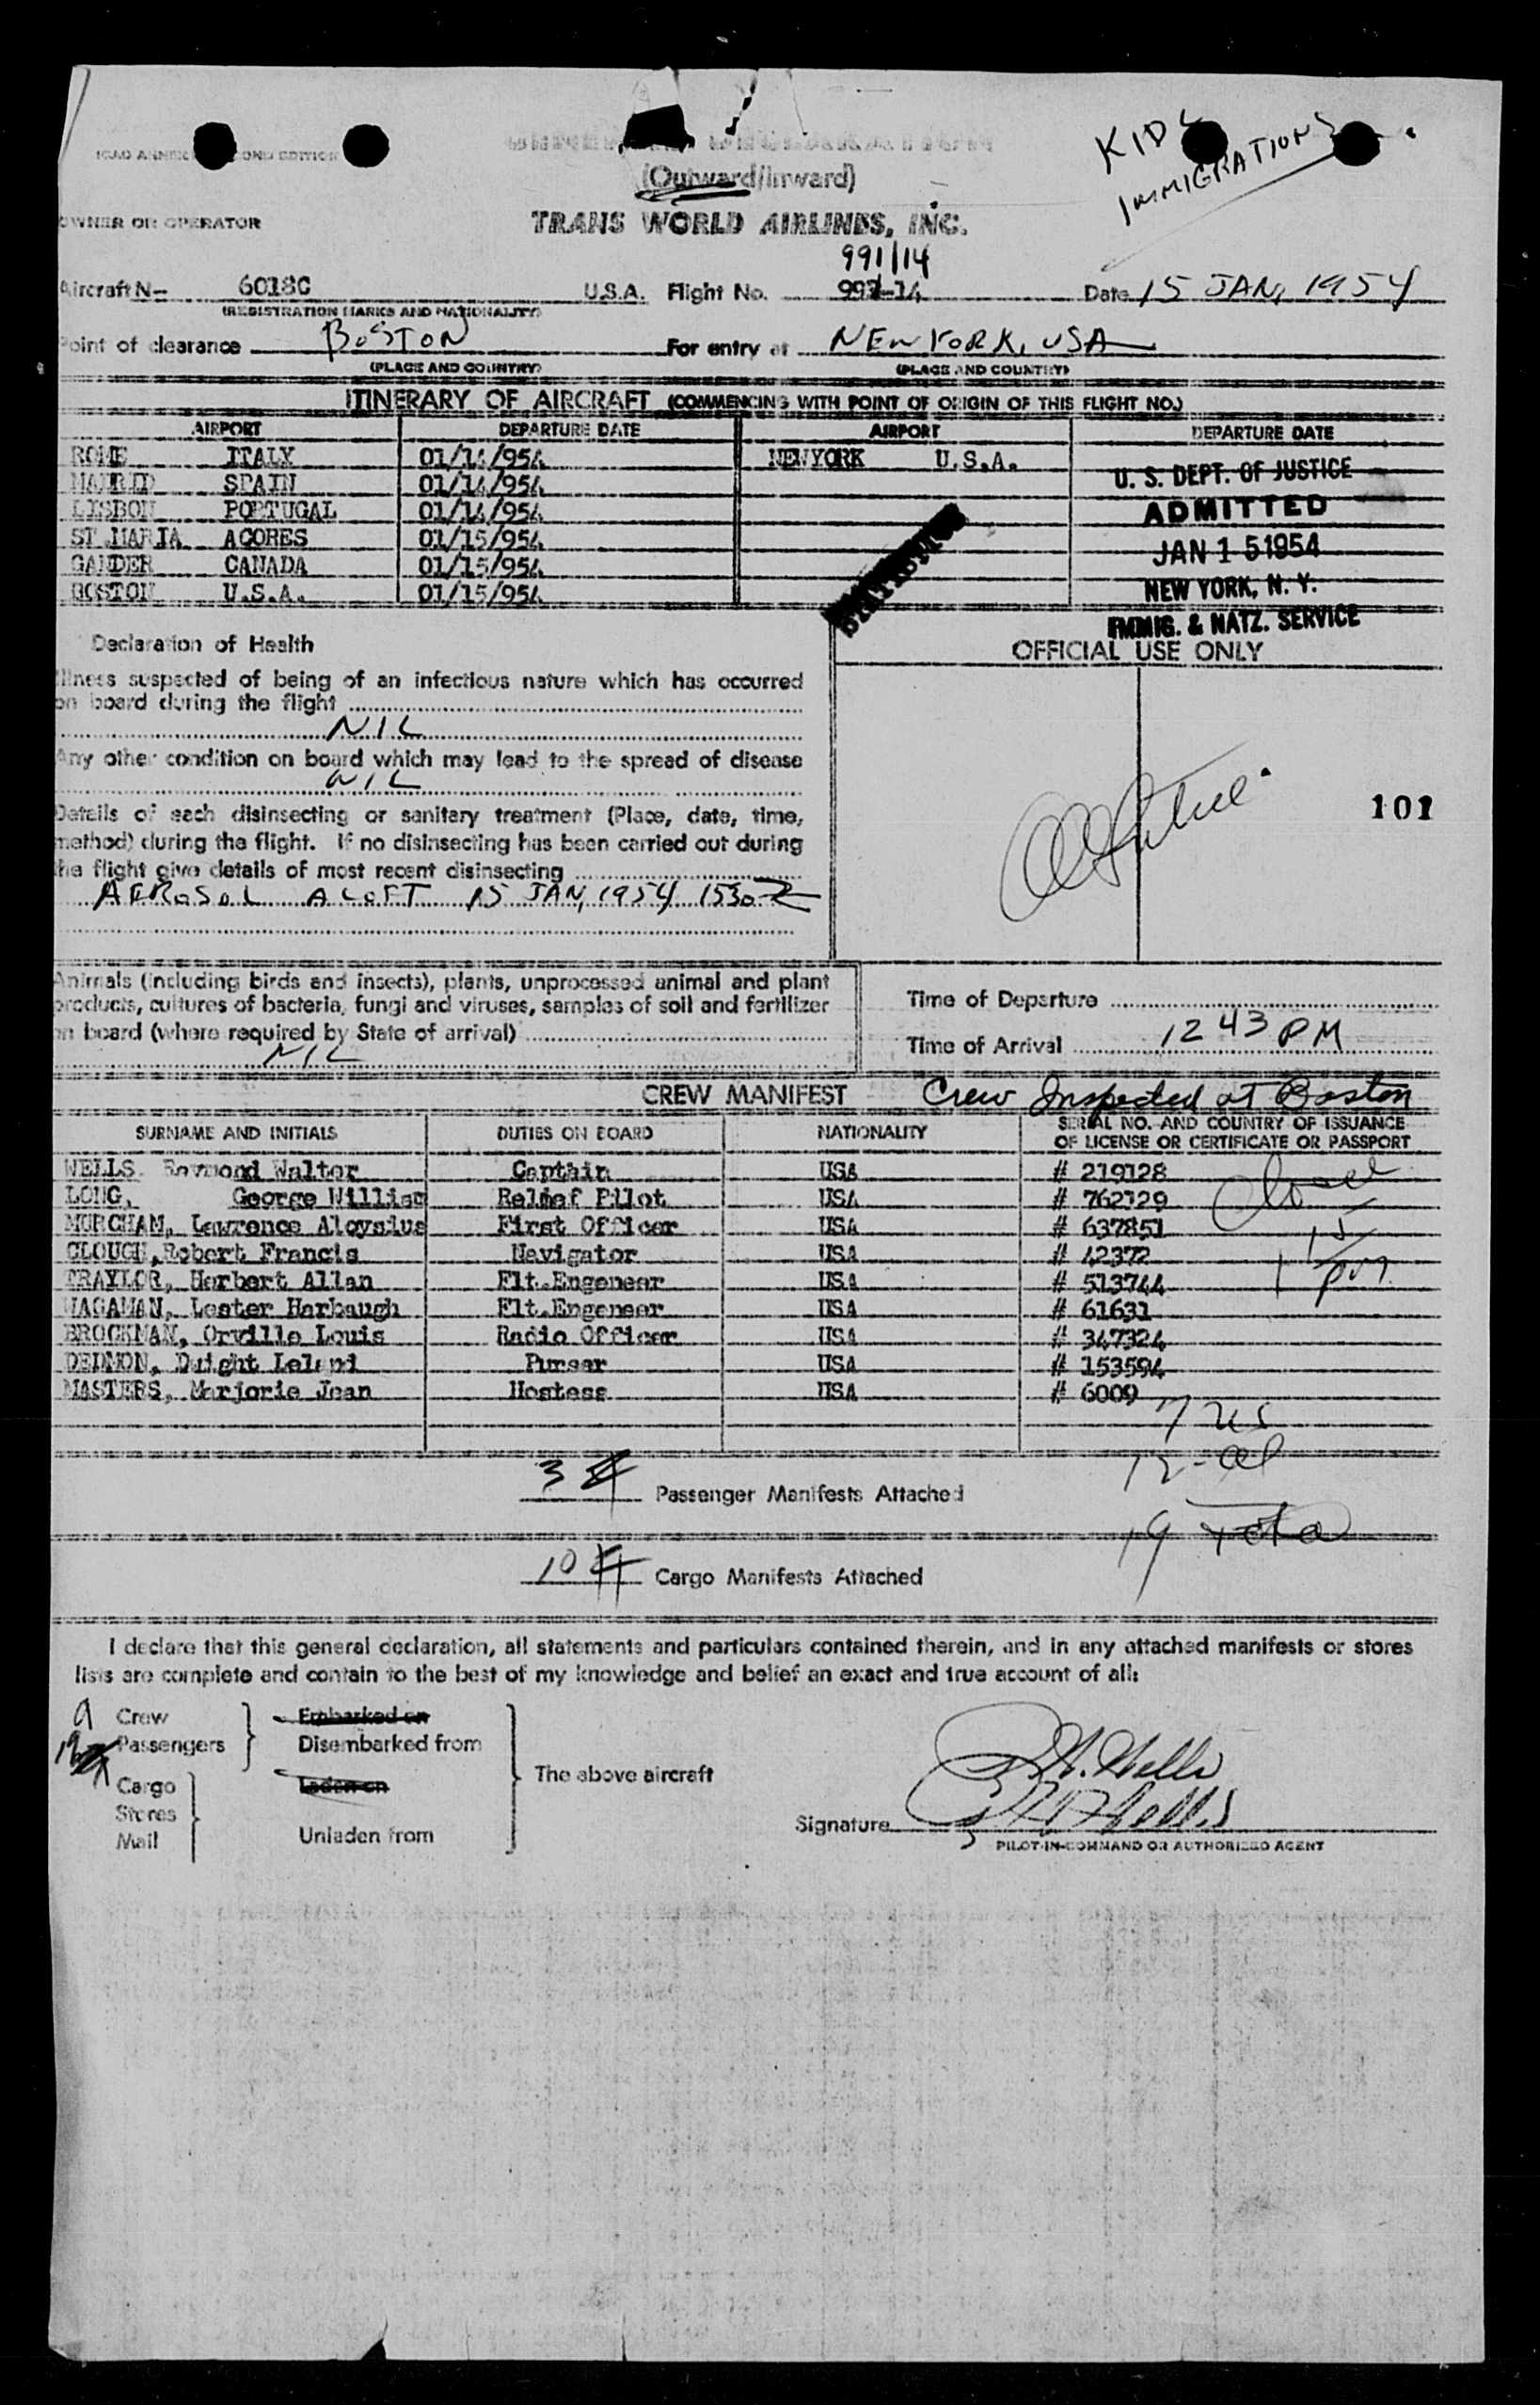 ICAO ANNEX OND EDITION
KIDL
IMMIGRATIONS
(Outward/Inward)
OWNER OR OPERATOR
TRANS WORLD AIRLINES, INC.
991/14
Aircraft N- 6018C U.S.A. Flight No. 991-14 Date 15 JAN, 1954
(REGISTRATION MARKS AND NATIONALITY)
Point of clearance BOSTON For entry at NEW YORK, USA
(PLACE AND COUNTRY) (PLACE AND COUNTRY)
ITINERARY OF AIRCRAFT (COMMENCING WITH POINT OF ORIGIN OF THIS FLIGHT NO.)
AIRPORT DEPARTURE DATE AIRPORT DEPARTURE DATE
ROME ITALY 01/14/954 NEWYORK U.S.A.
MADRID SPAIN 01/14/954
LISBON PORTUGAL 01/14/954
ST.MARIA ACORES 01/15/954
GANDER CANADA 01/15/954
BOSTON U.S.A. 01/15/954
U. S. DEPT. OF JUSTICE
ADMITTED
JAN 1 5 1954
NEW YORK, N. Y.
IMMIG. & NATZ. SERVICE
Declaration of Health
OFFICIAL USE ONLY
Illness suspected of being of an infectious nature which has occurred
on board during the flight
NIL
Any other condition on board which may lead to the spread of disease
NIL
Details of each disinsecting or sanitary treatment (Place, date, time,
method) during the flight. If no disinsecting has been carried out during
the flight give details of most recent disinsecting
AEROSOL ALOFT 15 JAN, 1954 1530Z
101
Animals (including birds and insects), plants, unprocessed animal and plant
products, cultures of bacteria, fungi and viruses, samples of soil and fertilizer
on board (where required by State of arrival)
NIL
Time of Departure
Time of Arrival 12 43 PM
CREW MANIFEST Crew Inspected at Boston
SURNAME AND INITIALS DUTIES ON BOARD NATIONALITY SERIAL NO. AND COUNTRY OF ISSUANCE
OF LICENSE OR CERTIFICATE OR PASSPORT
WELLS, Raymond Walter Captain USA # 219128
LONG, George William Relief Pilot USA # 762129
MURCHAM, Lawrence Aloysius First Officer USA # 637851
CLOUGH, Robert Francis Navigator USA # 42372
TRAYLOR, Herbert Allan Flt.Engeneer USA # 513744
WAGAMAN, Lester Harbaugh Flt.Engeneer USA # 61631
BROCKMAN, Orville Louis Radio Officer USA # 347324
DEDMON, Dwight Leland Purser USA # 153594
MASTERS, Marjorie Jean Hostess USA # 6009
7 us
12-al
3 Passenger Manifests Attached
19 Total
10 Cargo Manifests Attached
I declare that this general declaration, all statements and particulars contained therein, and in any attached manifests or stores
lists are complete and contain to the best of my knowledge and belief an exact and true account of all:
9 Crew Embarked on
19 Passengers Disembarked from
The above aircraft
Cargo Laden on
Stores
Mail Unladen from
Signature
PILOT-IN-COMMAND OR AUTHORIZED AGENT